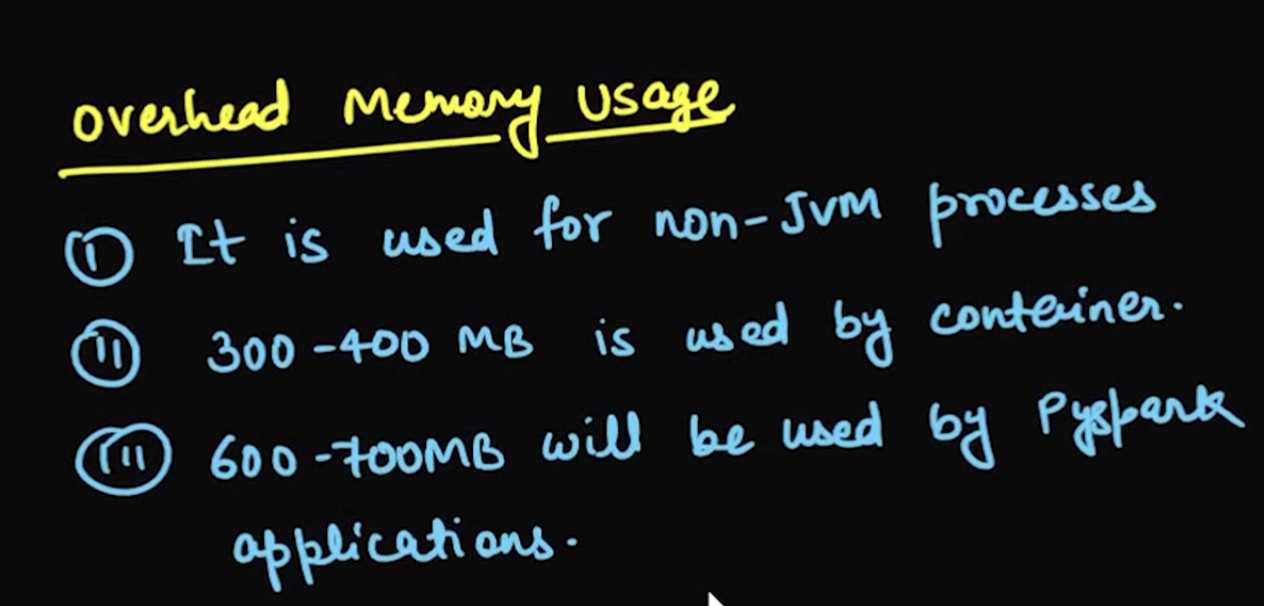 overhead Memory Usage
(I) It is used for non-JVM processes
(II) 300-400 MB is used by conteiner.
(III) 600-700MB will be used by Pyspark
applications.